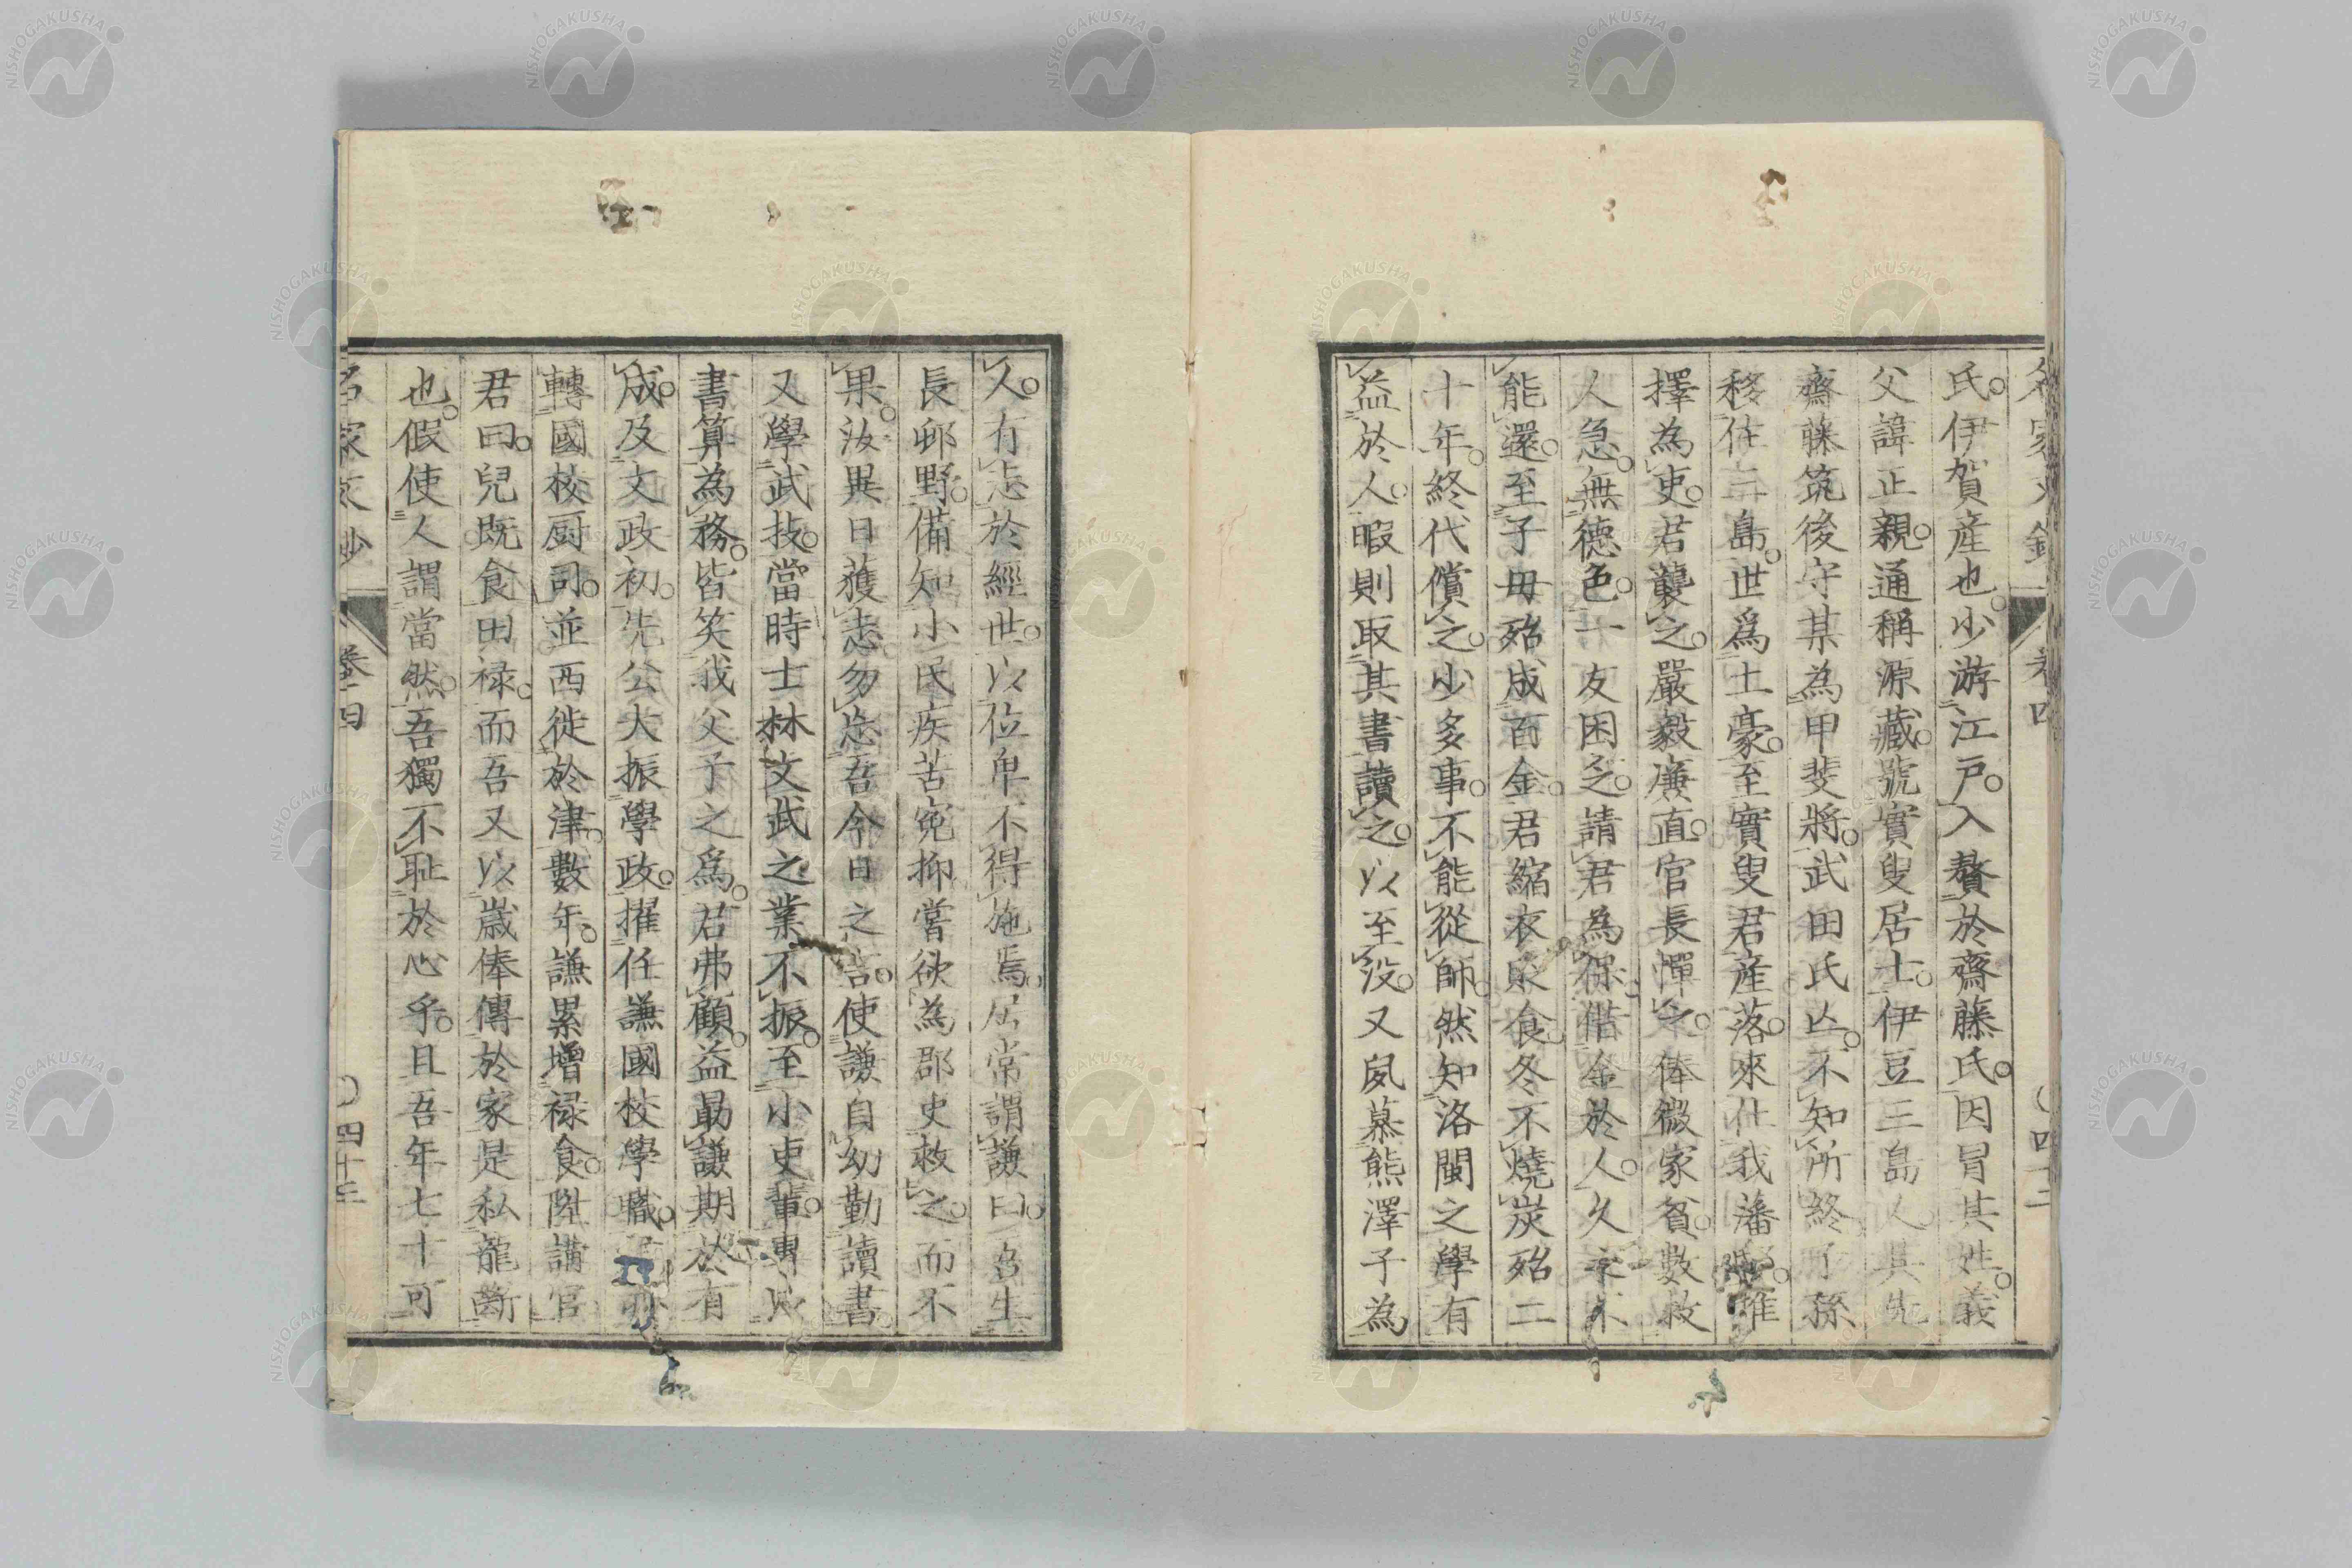 氏。伊賀産也。少游江戸。入贅於齋藤氏。因冒其姓。義
父諱正親。通稱源藏。號實叟居士。伊豆三島人。其先
齋藤筑後守某為甲斐將。武田氏亾。不知所終。子孫
移住三島。世爲土豪。至實叟君産落。來仕我藩。推
擇為吏。君襲之。嚴毅廉直。官長憚之。俸微家貧。數救
人急。無德色。一友困乏。請君為保借金於人。久未不
能還。至子母殆成百金。君縮衣汆食。冬不燒炭殆二
十年。終代償之。少多事。不能從師。然知洛閩之學有
益於人。暇則取其書讀之。以至没。又夙慕熊澤子為
人。有志於經世。以位卑不得施焉。居常謂謙曰。吾生
長邨野。備知小民疾苦冤抑。嘗欲為郡吏救之。而不
果。汝異日獲志。勿忘吾今日之言。使謙自幼勤讀書。
又學武技。當時士林文武之業不振。至小吏輩。專以
書算為務。皆笑我父子之爲。君弗顧。益勗謙期於有
成。及文政初。先公大振學政。擢任謙國校學職。
轉國校厨司。並西徙於津。數年。謙累增禄食。陞講官
君曰。兒既食田禄。而吾又以歳俸傳於家。是私龍斷
也。假使人謂當然。吾獨不耻於心乎。且吾年七十可
名家文抄 卷四 〇四十三